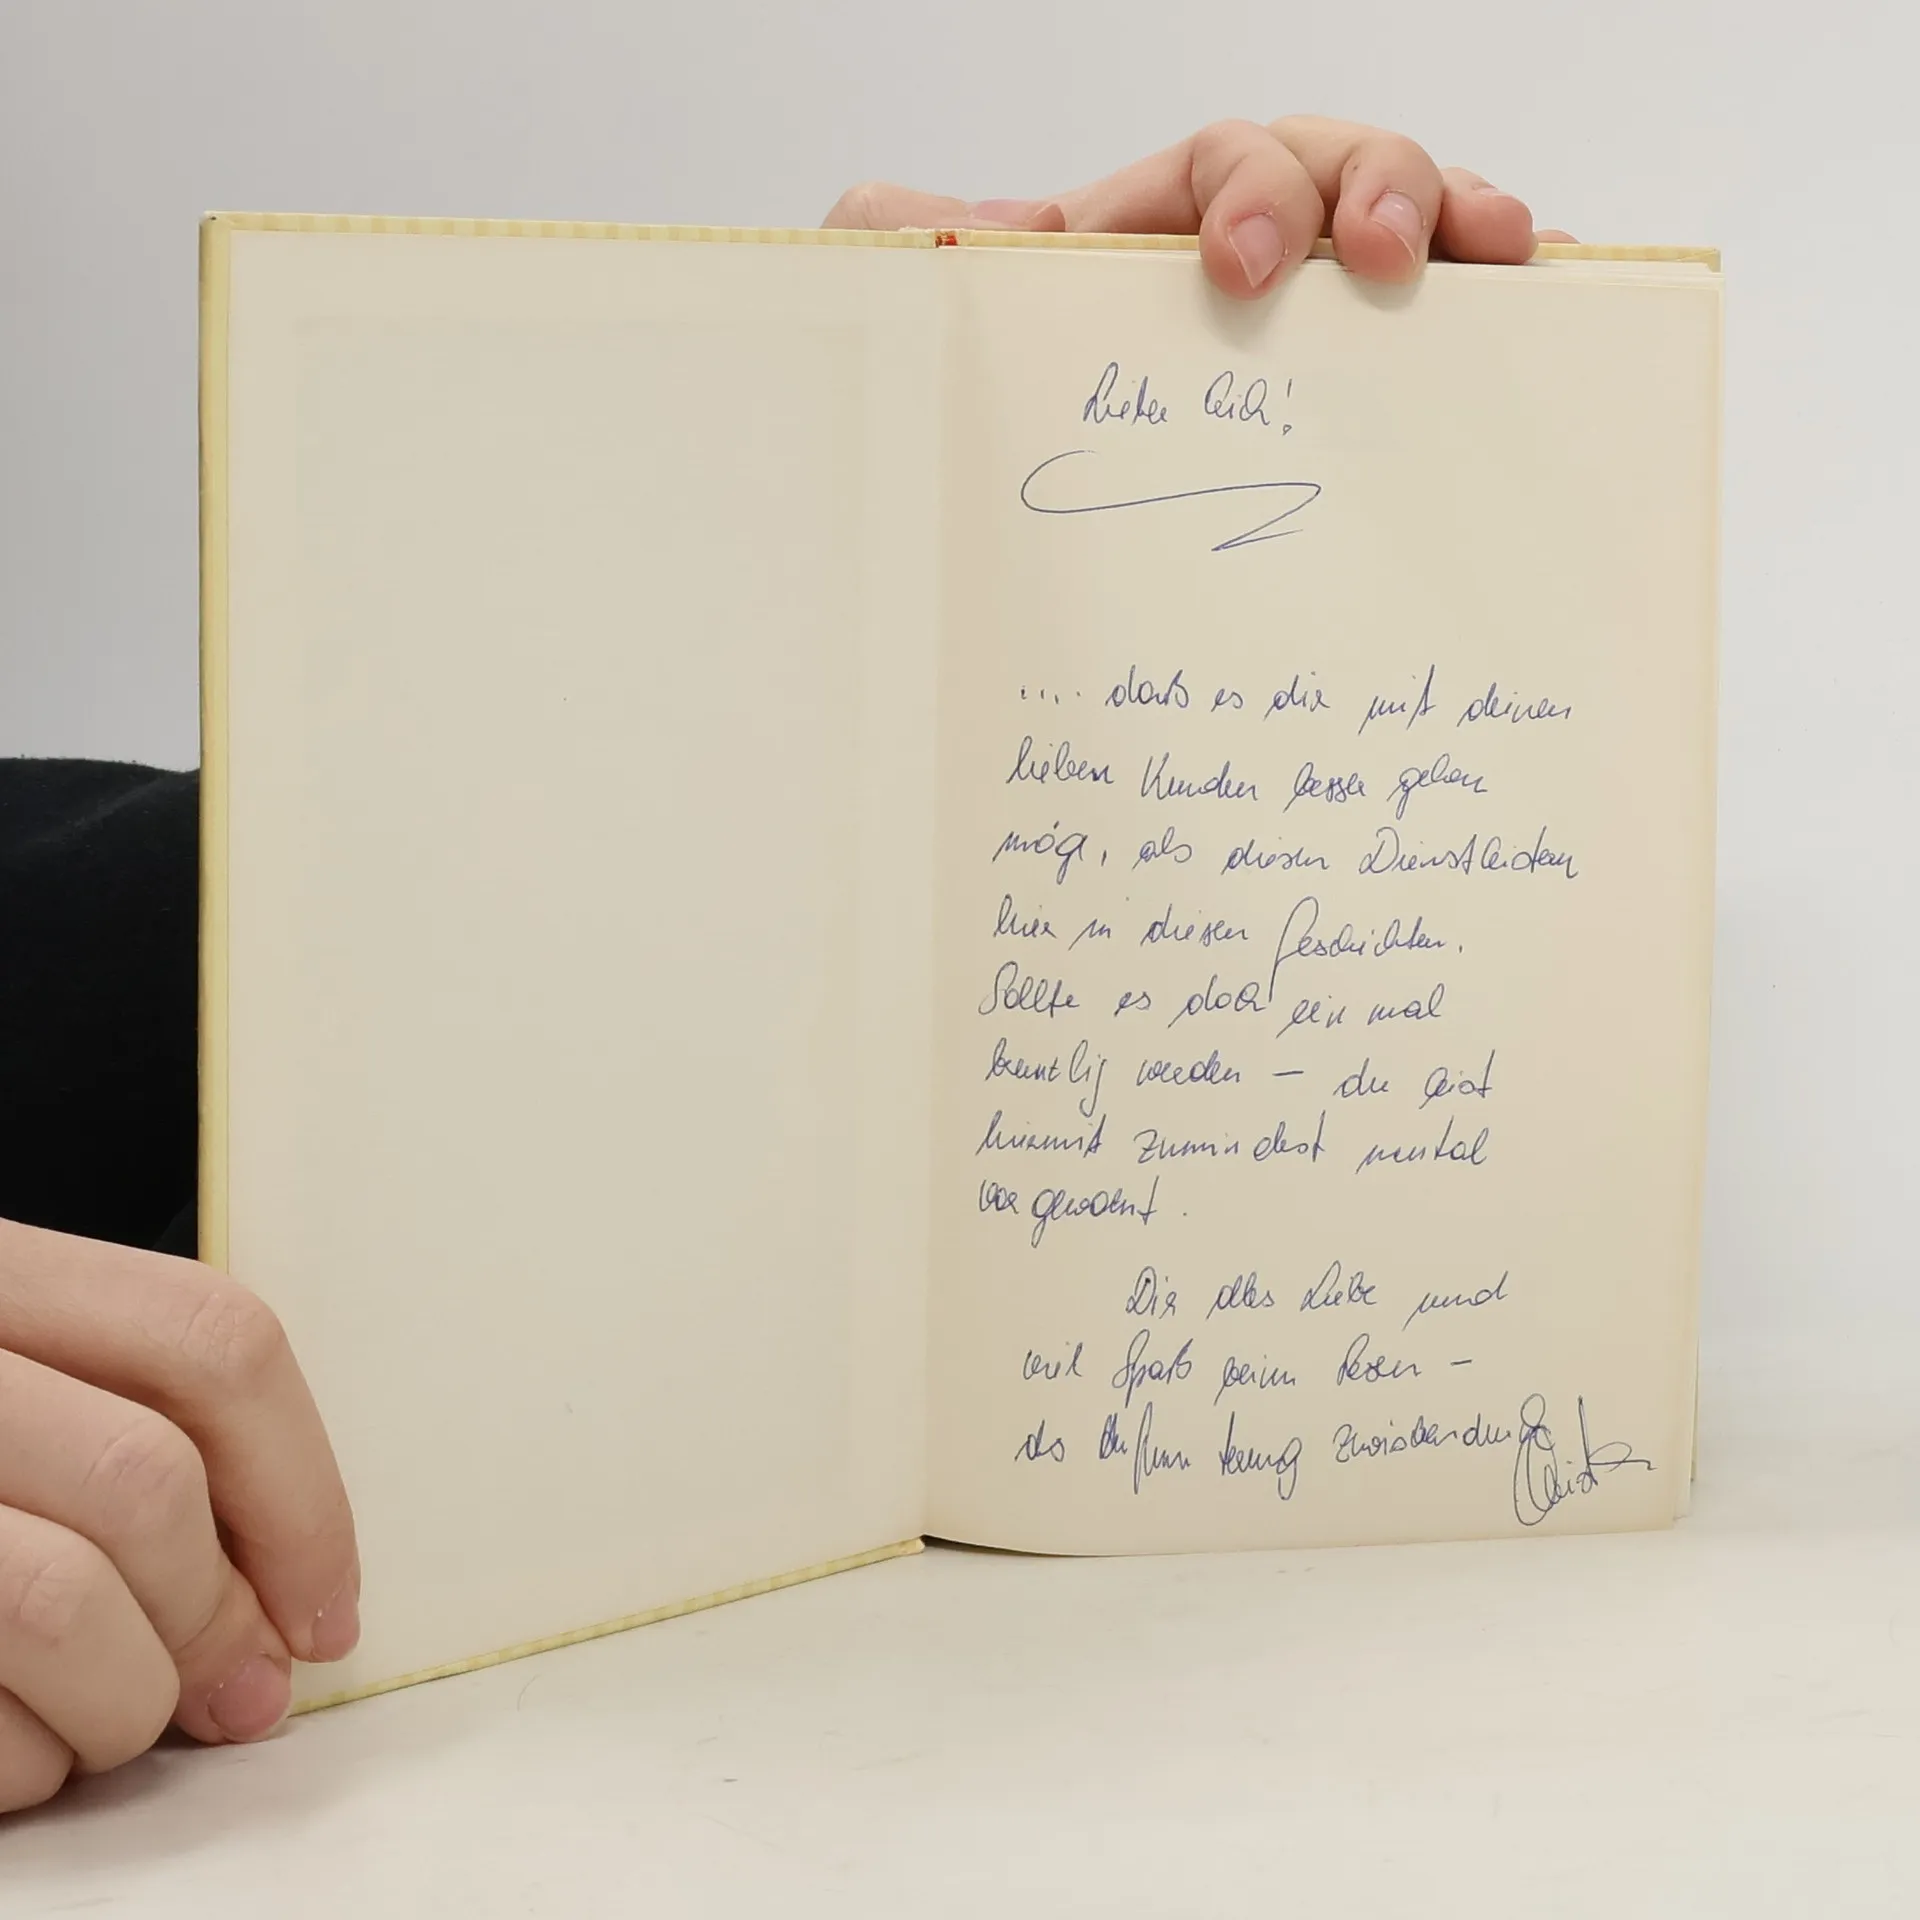 Lieber Erich!
.... daß es dir mit deinen
lieben Kunden besser gehen
möge, als diesen Dienstleistern
hier in diesen Geschichten.
Sollte es doch ein mal
brenzlig werden – du bist
hiermit zumindest mental
vorgewarnt.
Dir alles Liebe und
viel Spaß beim Lesen –
als Aufmunterung zwischendurch